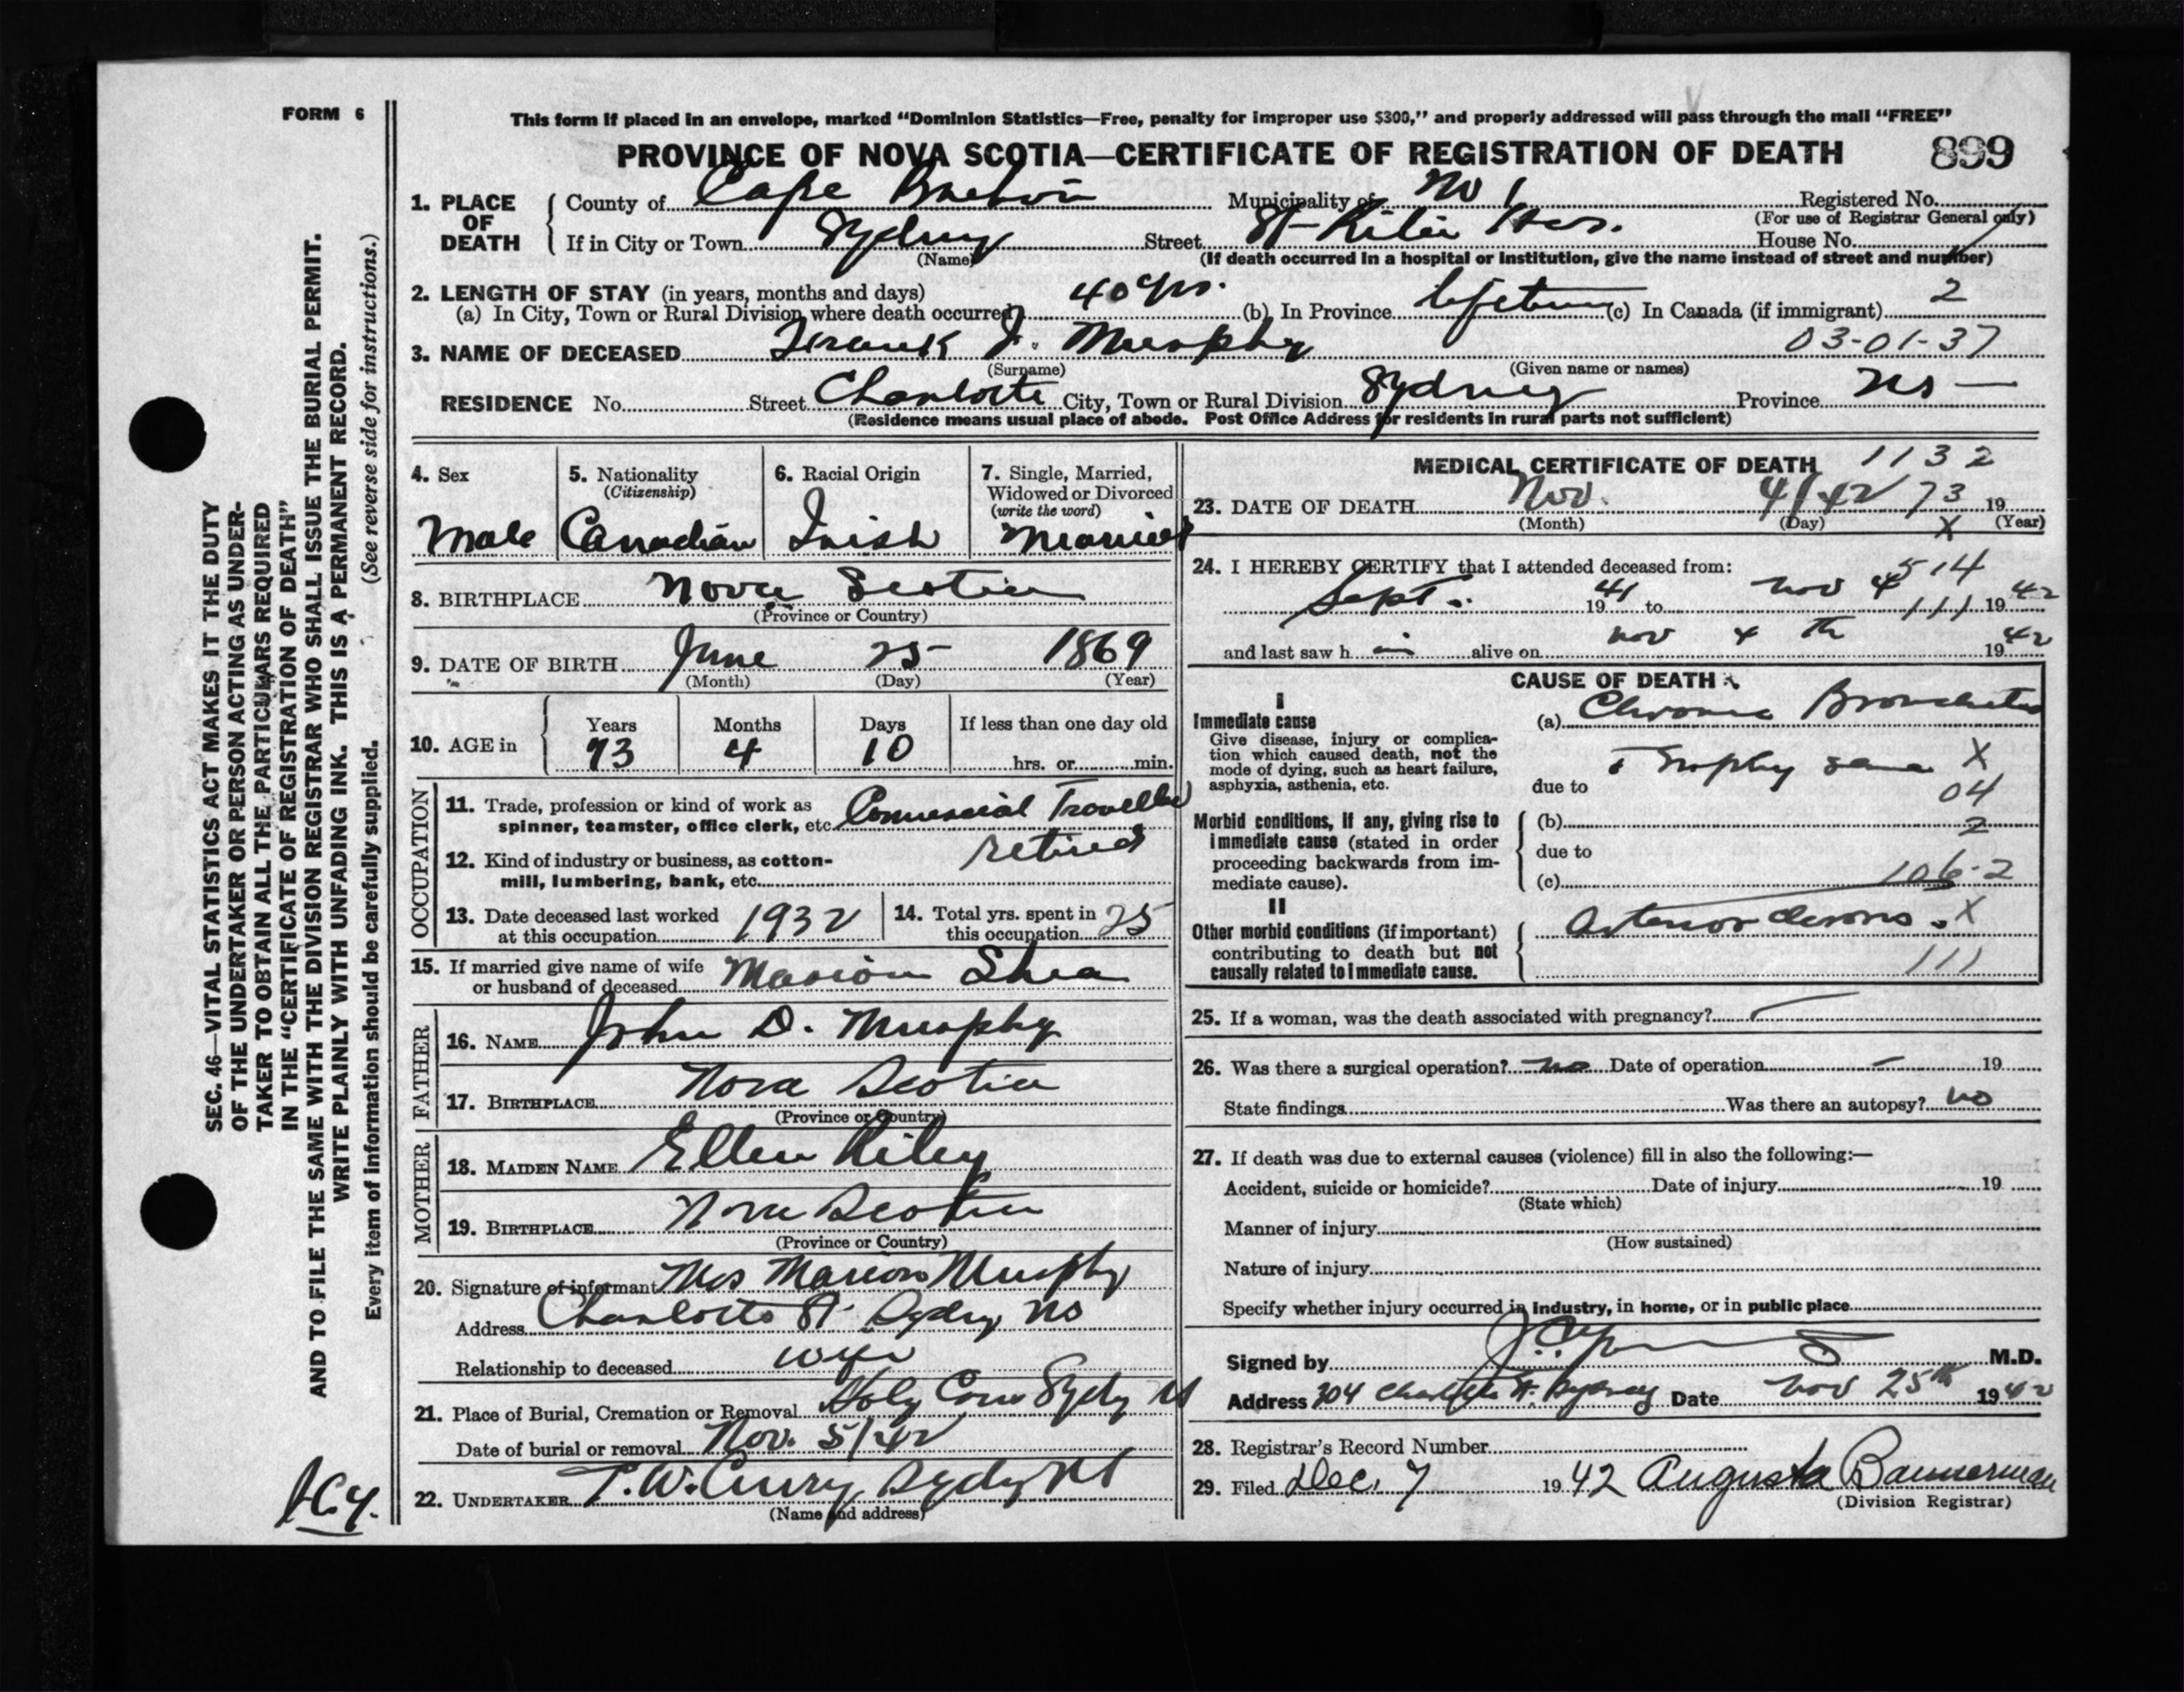 FORM 6
This form if placed in an envelope, marked “Dominion Statistics—Free, penalty for improper use $300,” and properly addressed will pass through the mail “FREE”
PROVINCE OF NOVA SCOTIA—CERTIFICATE OF REGISTRATION OF DEATH 899
1. PLACE OF DEATH County of Cape Breton Municipality of No 1 Registered No.
(For use of Registrar General only)
If in City or Town Sydney Street St Ritas Hos. House No.
(Name) (If death occurred in a hospital or institution, give the name instead of street and number)
2. LENGTH OF STAY (in years, months and days)
(a) In City, Town or Rural Division where death occurred 40 yrs. (b) In Province lifetime (c) In Canada (if immigrant) 2
3. NAME OF DECEASED Frank J. Murphy 03-01-37
(Surname) (Given name or names)
RESIDENCE No. Street Charlotte City, Town or Rural Division Sydney Province NS —
(Residence means usual place of abode. Post Office Address for residents in rural parts not sufficient)
4. Sex Male
5. Nationality (Citizenship) Canadian
6. Racial Origin Irish
7. Single, Married, Widowed or Divorced (write the word) Married
8. BIRTHPLACE Nova Scotia
(Province or Country)
9. DATE OF BIRTH June 25 1869
(Month) (Day) (Year)
10. AGE in Years 73 Months 4 Days 10 If less than one day old
hrs. or min.
OCCUPATION
11. Trade, profession or kind of work as spinner, teamster, office clerk, etc. Commercial Traveller
12. Kind of industry or business, as cotton-mill, lumbering, bank, etc. retired
13. Date deceased last worked at this occupation 1932
14. Total yrs. spent in this occupation 25
15. If married give name of wife or husband of deceased Marion Shea
FATHER
16. NAME John D. Murphy
17. BIRTHPLACE Nova Scotia
(Province or Country)
MOTHER
18. MAIDEN NAME Ellen Riley
19. BIRTHPLACE Nova Scotia
(Province or Country)
20. Signature of informant Mrs Marion Murphy
Address Charlotte St Sydney NS
Relationship to deceased wife
21. Place of Burial, Cremation or Removal Holy Cross Sydney NS
Date of burial or removal Nov. 5/42
22. UNDERTAKER T. W. Curry Sydney NS
(Name and address)
MEDICAL CERTIFICATE OF DEATH 1132
23. DATE OF DEATH Nov. 4/42 73 19
(Month) (Day) X (Year)
24. I HEREBY CERTIFY that I attended deceased from: 514
Sept. 1941 to Nov 4 111 1942
and last saw h im alive on Nov 4 th 1942
CAUSE OF DEATH
I
Immediate cause
Give disease, injury or complication which caused death, not the mode of dying, such as heart failure, asphyxia, asthenia, etc.
(a) Chronic Bronchitis
X
due to 04
Morbid conditions, if any, giving rise to immediate cause (stated in order proceeding backwards from immediate cause).
(b) 2
due to
(c) 106-2
II
Other morbid conditions (if important) contributing to death but not causally related to immediate cause.
X
111
25. If a woman, was the death associated with pregnancy?
26. Was there a surgical operation? no Date of operation – 19
State findings Was there an autopsy? no
27. If death was due to external causes (violence) fill in also the following:—
Accident, suicide or homicide? Date of injury 19
(State which)
Manner of injury
(How sustained)
Nature of injury
Specify whether injury occurred in industry, in home, or in public place
Signed by M.D.
Address 304 Charlotte St. Sydney Date Nov 25th 1942
28. Registrar's Record Number
29. Filed Dec. 7 1942 Augusta Bannerman
(Division Registrar)
SEC. 46—VITAL STATISTICS ACT MAKES IT THE DUTY
OF THE UNDERTAKER OR PERSON ACTING AS UNDER-
TAKER TO OBTAIN ALL THE PARTICULARS REQUIRED
IN THE “CERTIFICATE OF REGISTRATION OF DEATH”
AND TO FILE THE SAME WITH THE DIVISION REGISTRAR WHO SHALL ISSUE THE BURIAL PERMIT.
WRITE PLAINLY WITH UNFADING INK. THIS IS A PERMANENT RECORD.
Every item of information should be carefully supplied. (See reverse side for instructions.)